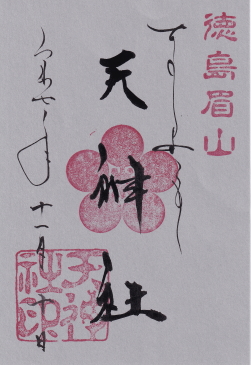 徳島眉山
奉拝
天神社
令和七年
十一月十日
天神社印